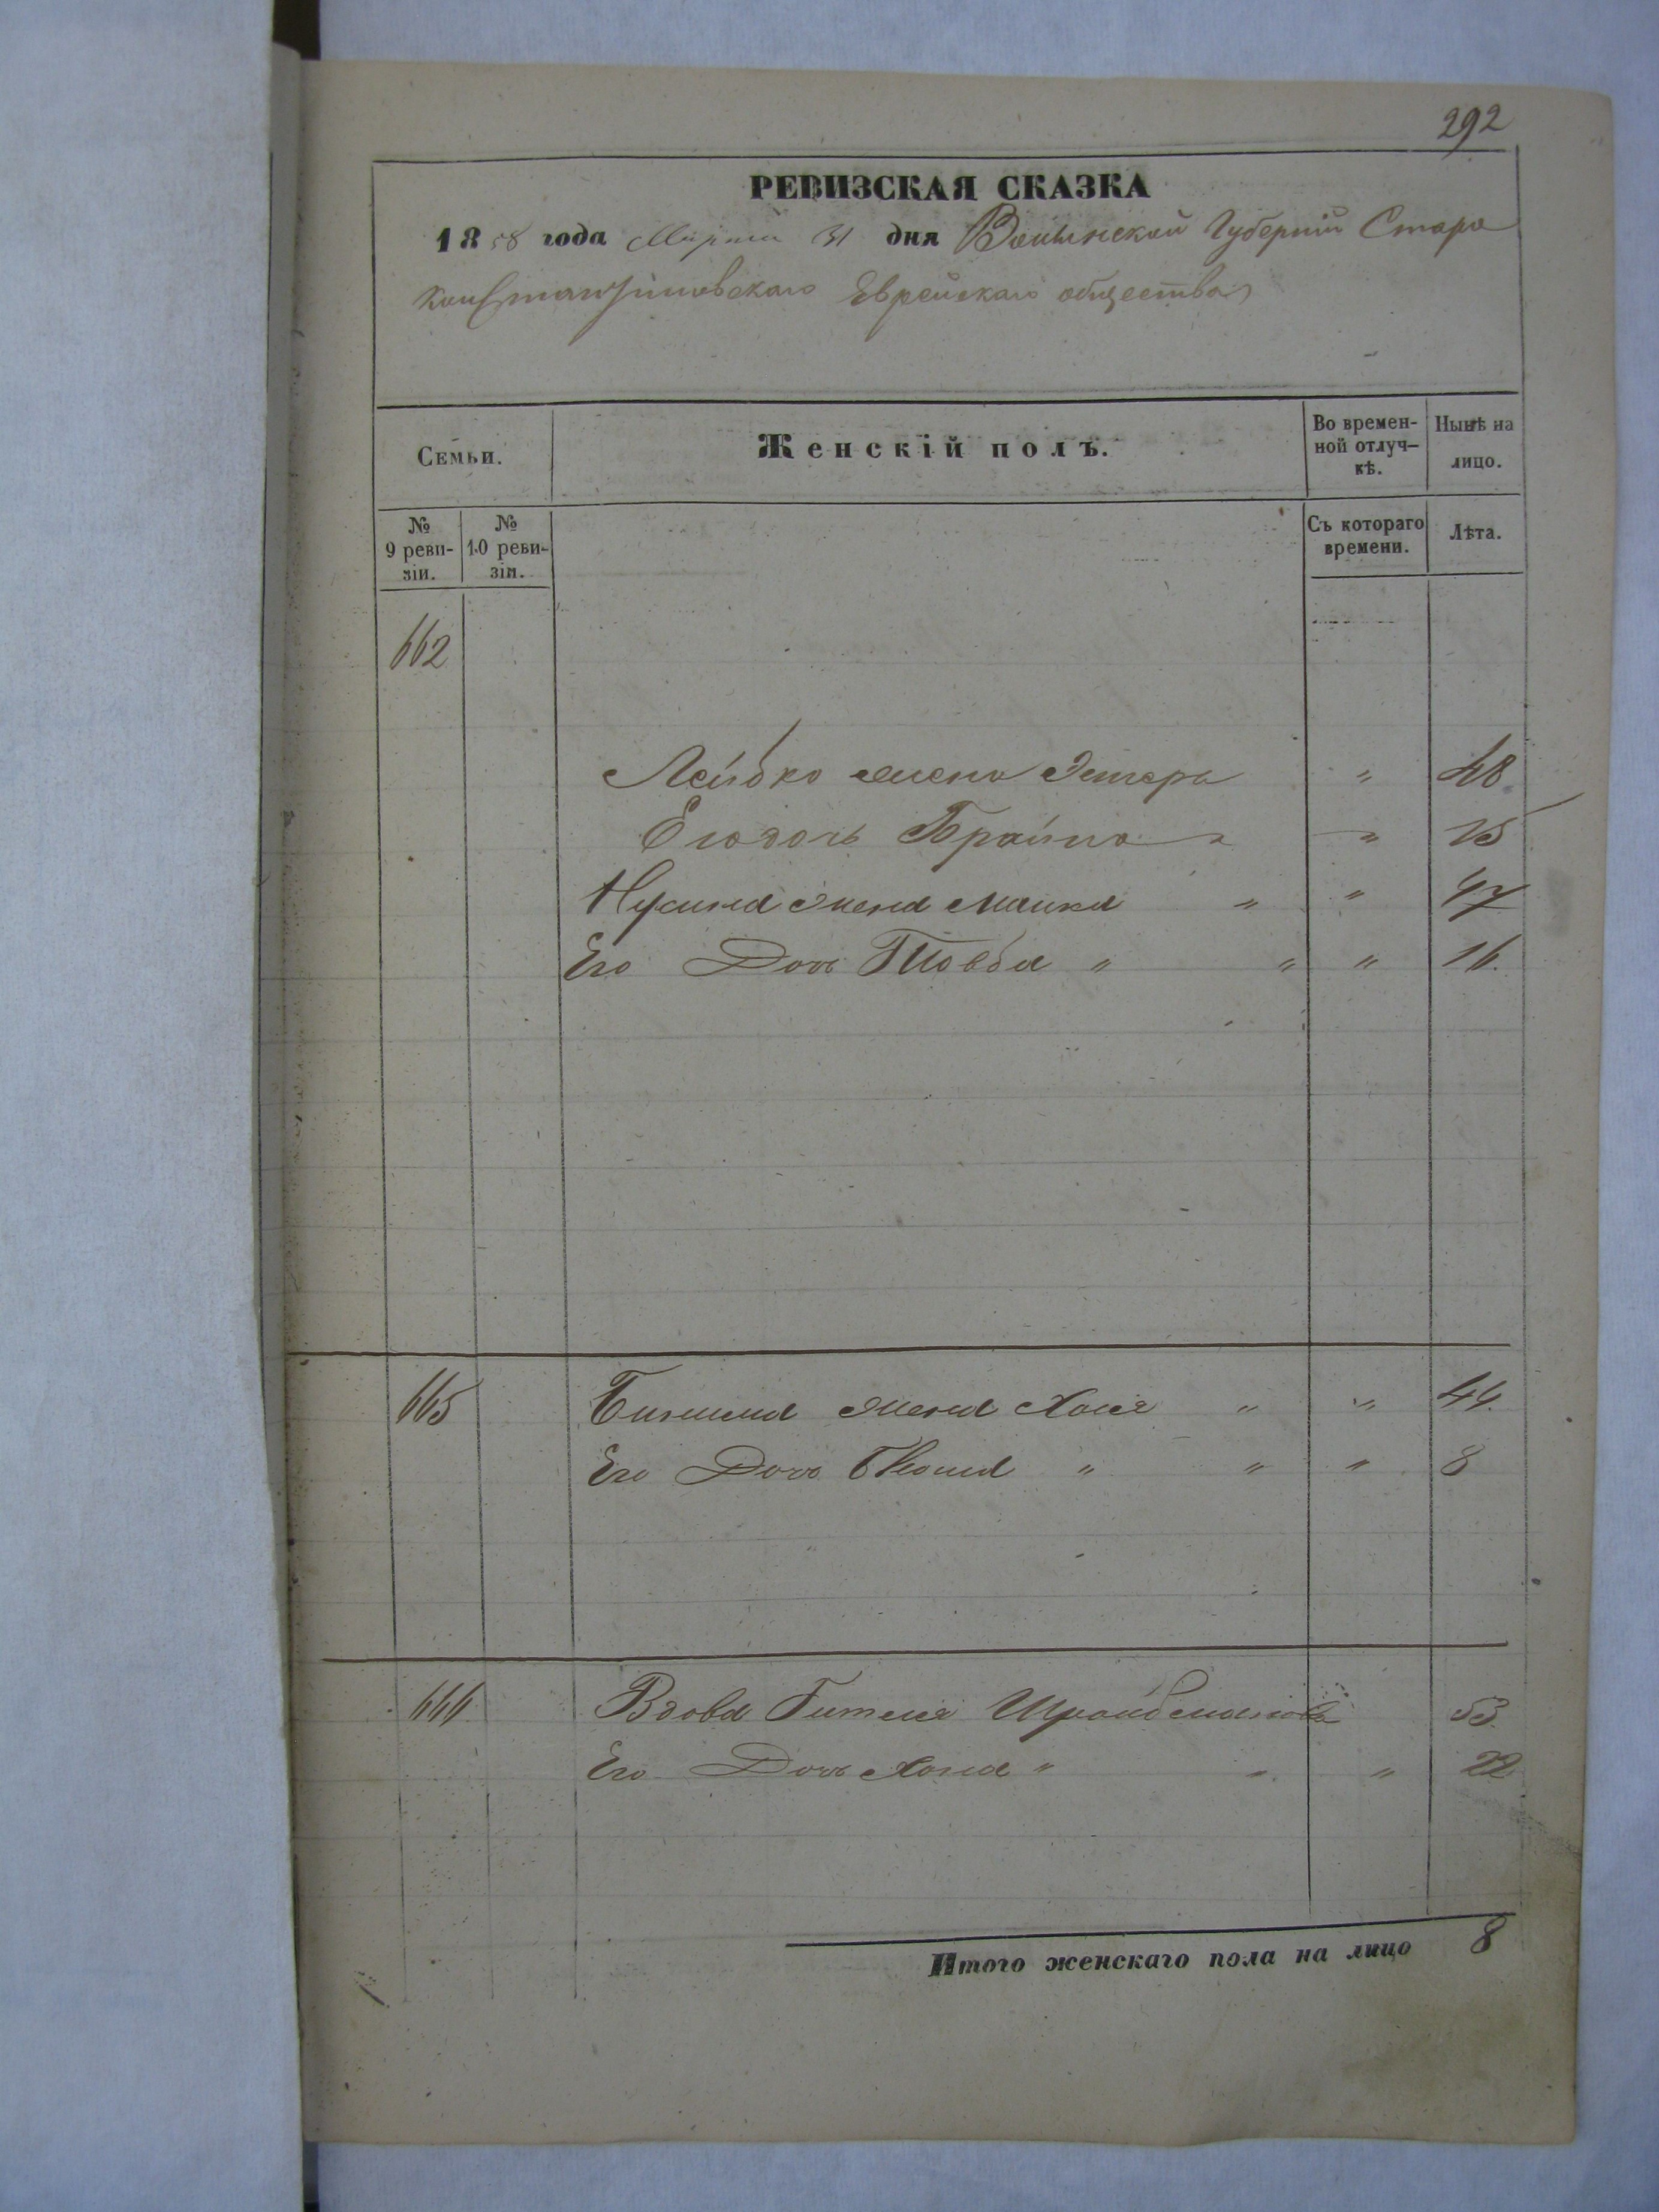 292
РЕВИЗСКАЯ СКАЗКА
1858 года Марта 31 дня Волынской Губерніи Старо
константиновскаго Еврейскаго общества
Семьи. Женскій полъ. Во времен-ной отлуч-кѣ. Нынѣ на лицо.
№ 9 реви-зіи. № 10 реви-зіи. Съ котораго времени. Лѣта.
662
Лейбко жена Эстеръ " 48
Его дочь Брайна " " 15
Нусина жена Малка " " 47
Его Дочь Товба " " " 16.
665 жена Хася " " 44.
Его Дочь " " " 8
666 Вдова Гителя 53.
Его Дочь Хана " " " 22
Итого женскаго пола на лицо 8